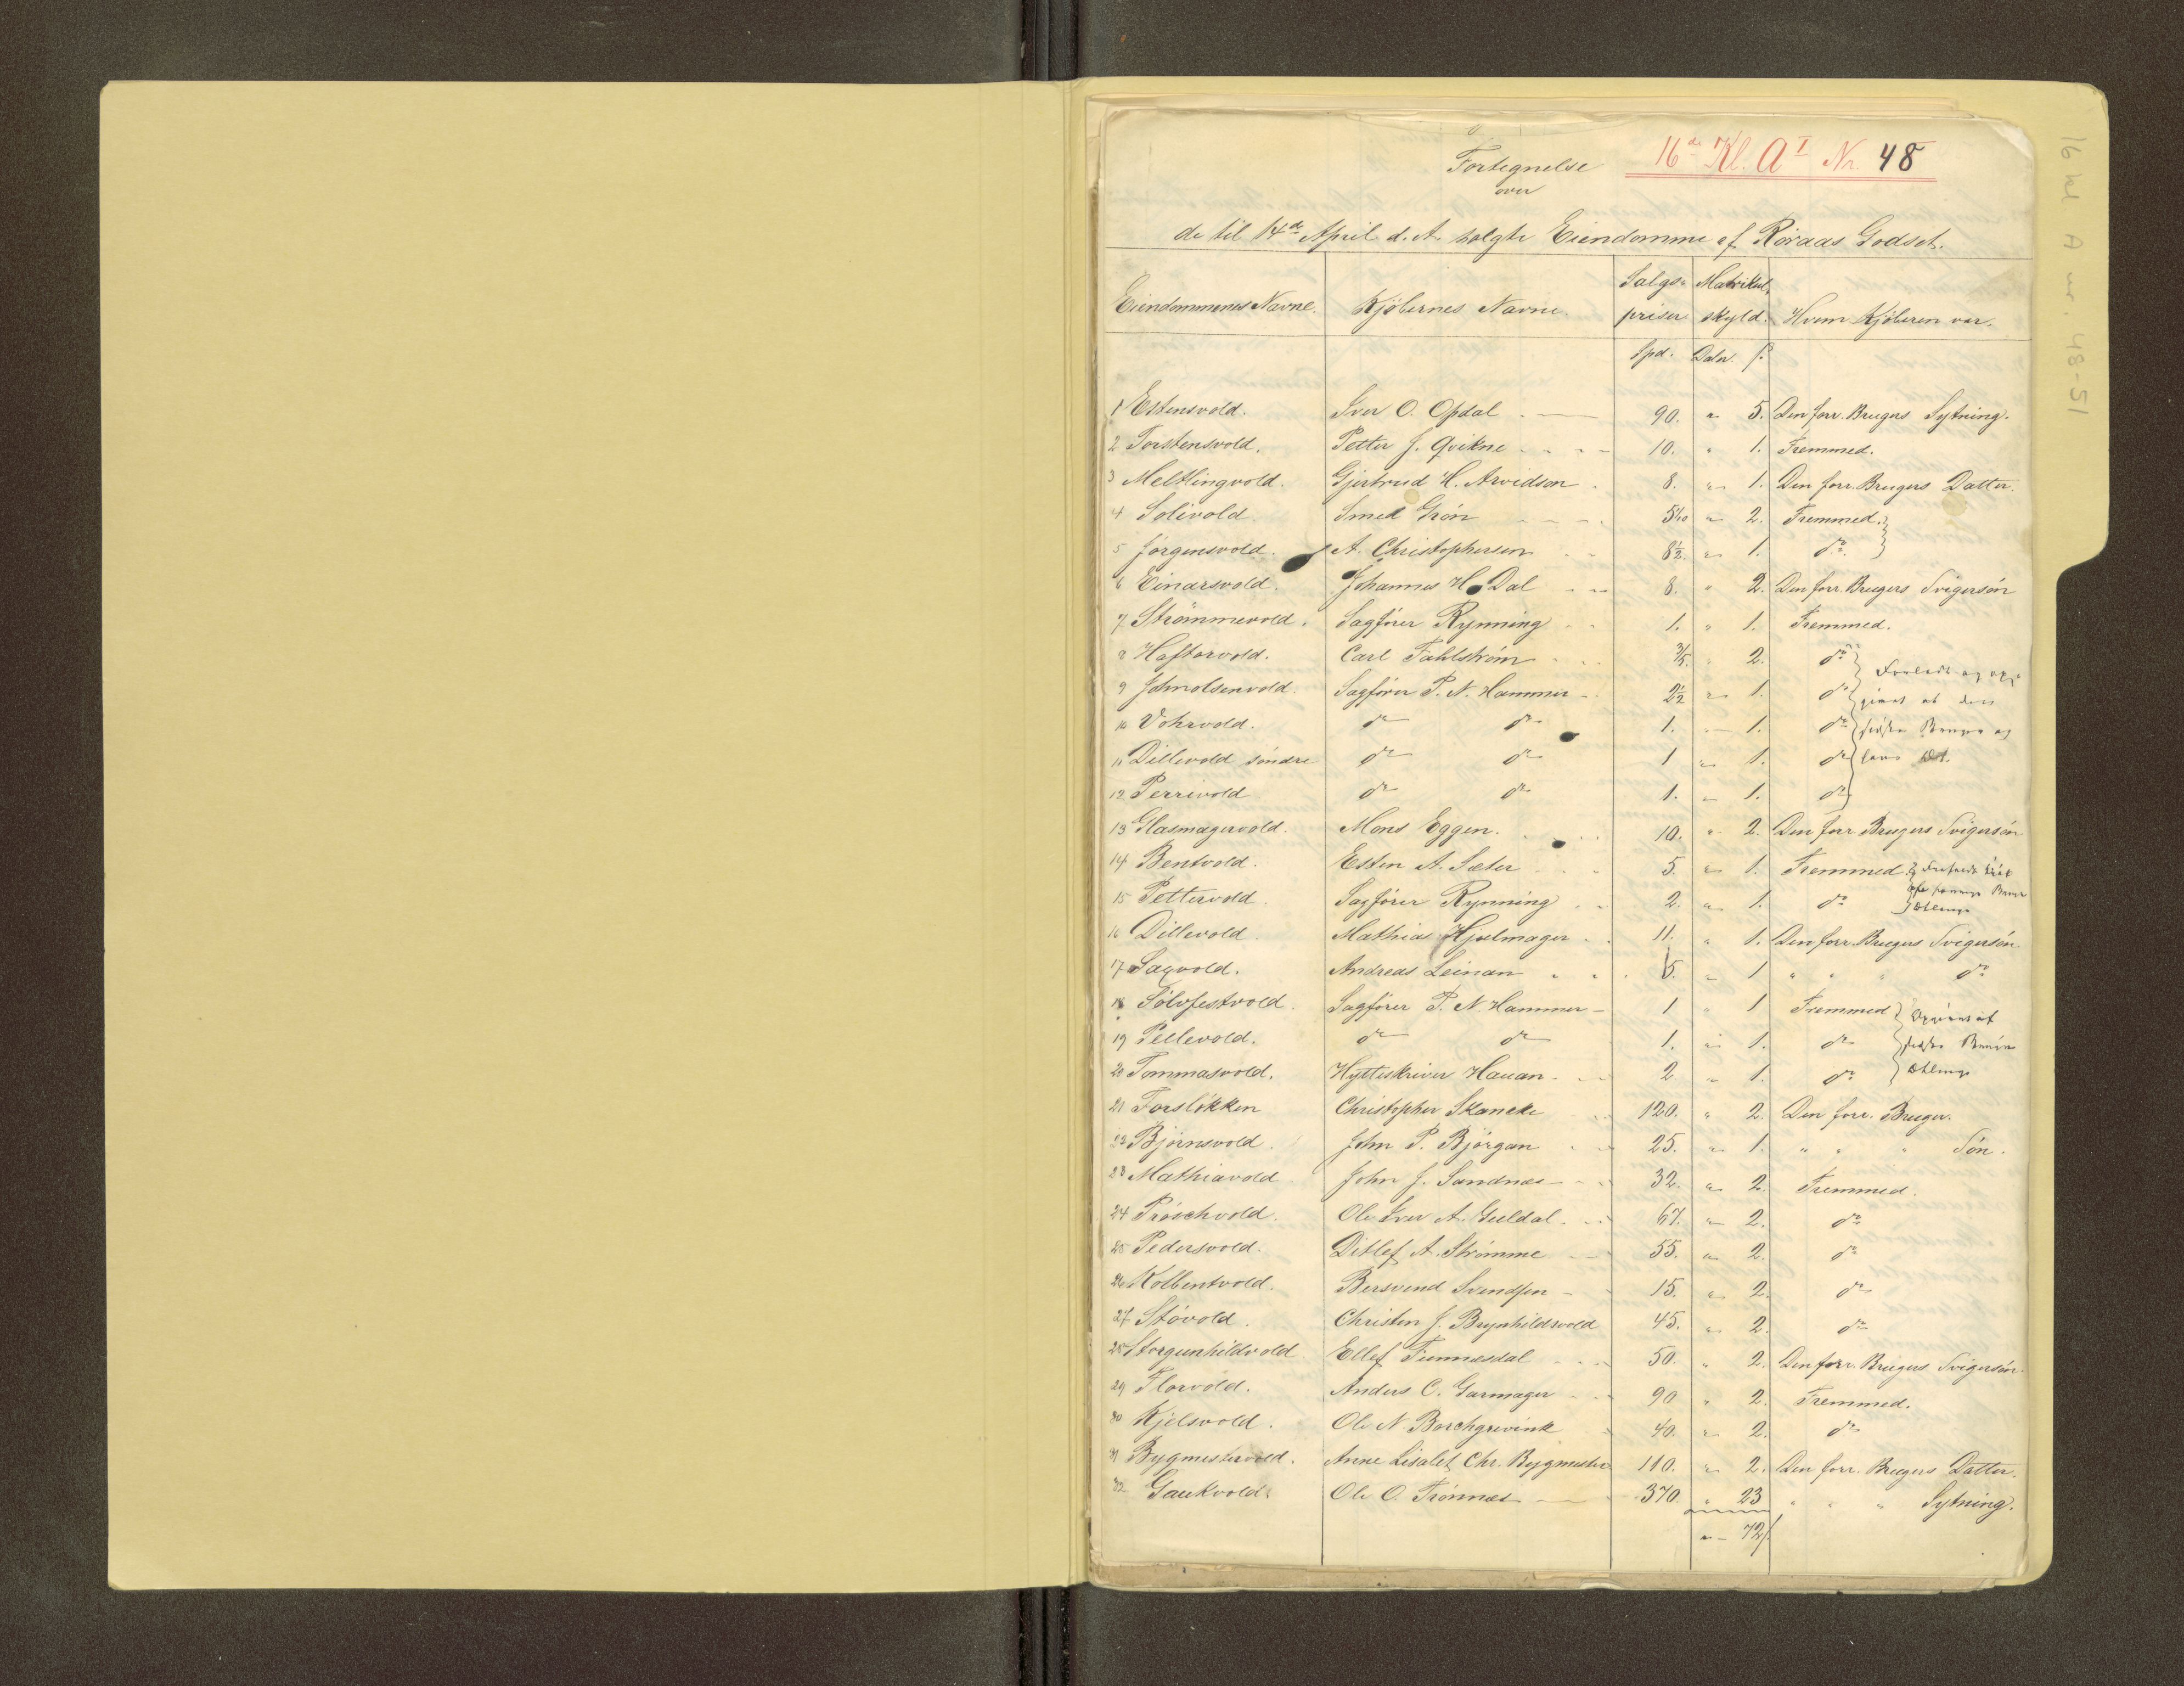 16de Kl. A I Nr. 48
Fortegnelse
over
de til 14de April d. A. solgte Eiendomme af Röraas Godset.
Eiendommenes Navne. Kjöbernes Navne. Salgs- priser Matrikul- skyld. Hvem Kjöberen var.
Spd. Daler. ß
1 Estensvold. Iver O. Opdal 90. " 5. Den forr. Brugers Sytning.
2 Torstensvold. Petter J. Qvikne 10. " 1. Fremmed.
3 Meltlingvold. Gjertrud H. Arvidson 8. " 1. Den forr. Brugers Datter.
4 Solivold Smed Grön " 2. Fremmed.
5 Jörgensvold. A. Christophersen 8½. " 1. do
6 Einarsvold. Johannes H. Dal 8. " 2. Den forr. Brugers Svigersön
7 Strömmevold. Sagförer Rynning 1. " 1. Fremmed.
8 Haftorvold. Carl Fahlström " 2. do
9 Johnolsenvold. Sagförer P. N. Hammer 2½ " 1. do
10 Vohrvold. do do 1. " 1. do
11 Dillevold söndre do do 1 " 1. do
12 Perrivold do do 1. " 1. do
13 Glasmagervold. Mons Eggen. 10. " 2. Den forr. Brugers Svigersön
14 Bentvold. Esten A. Sæter 5. " 1. Fremmed.
15 Pettervold. Sagförer Rynning 2. " 1. do
16 Dillevold. Mathias Hjulmager 11. " 1. Den forr. Brugers Svigersön
17 Sagvold. Andreas Leinan 5. " 1 " " " do
18 Solvfestvold. Sagförer P. N. Hammer 1 " 1 Fremmed
19 Pellevold. do do 1. " 1. do
20 Tommasvold. Hytteskriver Hauan 2 " 1. do
21 Forslökken Christopher Skancke 120. " 2. Den forr. Bruger.
22 Björnsvold. John P. Björgan 25. " 1. " " " Sön.
23 Mathiavold John J. Sandnæs 32. " 2. Fremmed.
24 Pröschvold. Ole Iver A. Guldal 67. " 2. do
25 Pedersvold. Ditlef A. Strömme 55. " 2. do
26 Kolbentvold. Bersvend Svendsen 15. " 2. do
27 Stövold. Christen J. Brynhildsvold 45. " 2. do
28 Storgunhildvold Ellef Tunnæsdal 50. " 2. Den forr. Brugers Svigersön.
29 Florvold. Anders C. Garmager 90 " 2. Fremmed.
30 Kjelsvold. Ole N Borchgrevink 40. " 2. do
31 Bygmestervold. Anne Lisabet Chr. Bygmester 110. " 2. Den forr. Brugers Datter.
32 Gaukvold. Ole O. Trönnes 370. " 23 " " " Sytning.
" 72 ß
16 kl A nr. 48-51